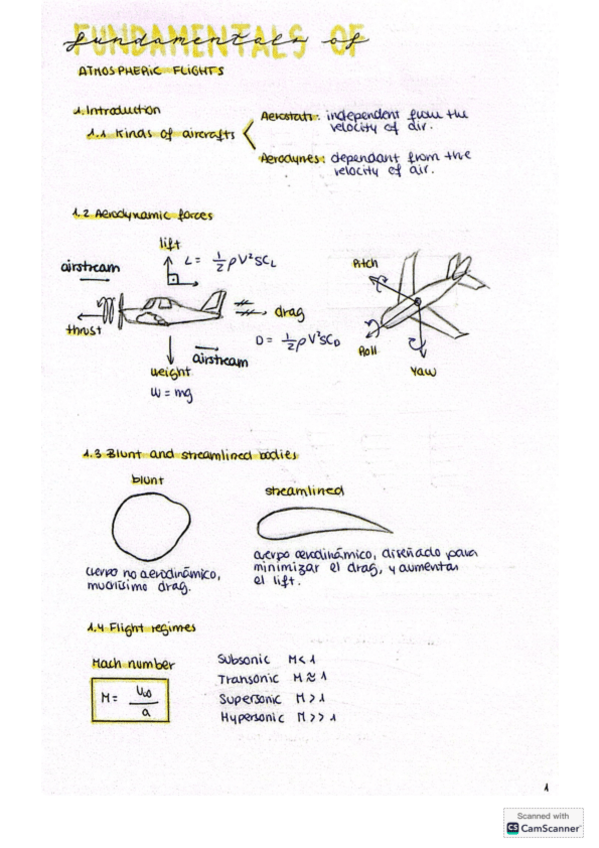 FUNDAMENTALS OF
fundamentals of
ATMOSPHERIC FLIGHTS
1. Introduction
1.1 Kinds of aircrafts
Aerostats: independent from the
velocity of air.
Aerodynes: dependant from the
velocity of air.
1.2 Aerodynamic forces
lift
L = 1/2 ρV²SCL
airstream
thrust
drag
D = 1/2 ρV²SCD
airstream
weight
W = mg
Pitch
Roll
Yaw
1.3 Blunt and streamlined bodies
blunt
cuerpo no aerodinámico,
muchísimo drag.
streamlined
cuerpo aerodinámico, diseñado para
minimizar el drag, y aumentar
el lift.
1.4 Flight regimes
Mach number
M = U∞/a
Subsonic M < 1
Transonic M ≈ 1
Supersonic M > 1
Hypersonic M >> 1
1
Scanned with
CS CamScanner